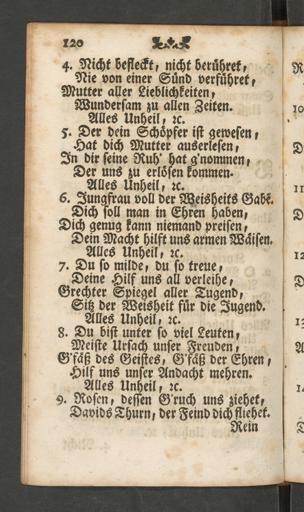 120
4. Nicht befleckt, nicht berühret,
Nie von einer Sünd verführet,
Mutter aller Lieblichkeiten,
Wundersam zu allen Zeiten.
Alles Unheil, ꝛc.
5. Der dein Schöpfer ist gewesen,
Hat dich Mutter auserlesen,
In dir seine Ruh' hat g'nommen,
Der uns zu erlösen kommen.
Alles Unheil, ꝛc.
6. Jungfrau voll der Weisheits Gabe.
Dich soll man in Ehren haben,
Dich genug kann niemand preisen,
Dein Macht hilft uns armen Wäisen.
Alles Unheil, ꝛc.
7. Du so milde, du so treue,
Deine Hilf uns all verleihe,
Grechter Spiegel aller Tugend,
Sitz der Weisheit für die Jugend.
Alles Unheil, ꝛc.
8. Du bist unter so viel Leuten,
Meiste Ursach unser Freuden,
G'fäß des Geistes, G'fäß der Ehren,
Hilf uns unser Andacht mehren.
Alles Unheil, ꝛc.
9. Rosen, dessen G'ruch uns ziehet,
Davids Thurn, der Feind dich fliehet.
Rein